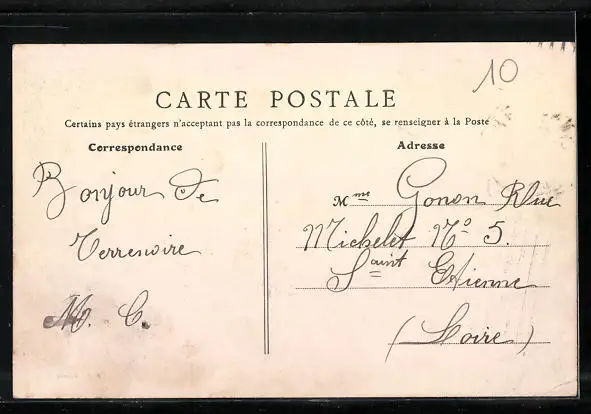 10
CARTE POSTALE
Certains pays étrangers n'acceptant pas la correspondance de ce côté, se renseigner à la Poste
Correspondance
Bonjour De
Terrenoire
M. C.
Adresse
Mme Gonon Rue
Michelet No 5.
Saint Etienne
(Loire)